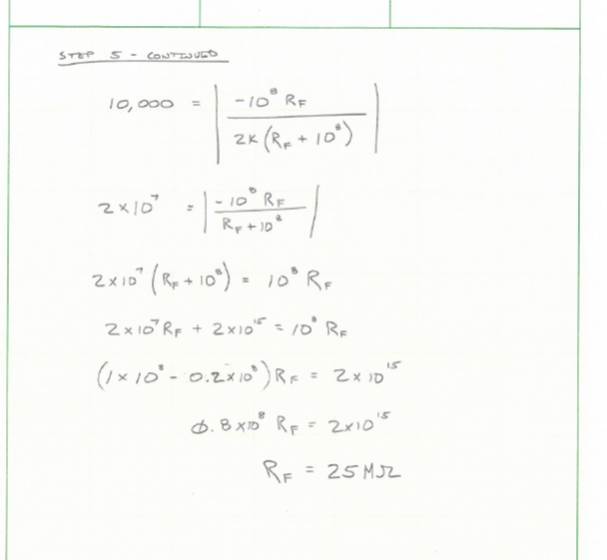 STEP 5 - CONTINUED
10,000 = | -10⁸ R_F / 2K(R_F + 10⁸) |
2×10⁷ = | -10⁸ R_F / R_F + 10⁸ |
2×10⁷ (R_F + 10⁸) = 10⁸ R_F
2×10⁷ R_F + 2×10¹⁵ = 10⁸ R_F
(1×10⁸ - 0.2×10⁸) R_F = 2×10¹⁵
0.8×10⁸ R_F = 2×10¹⁵
R_F = 25 MΩ